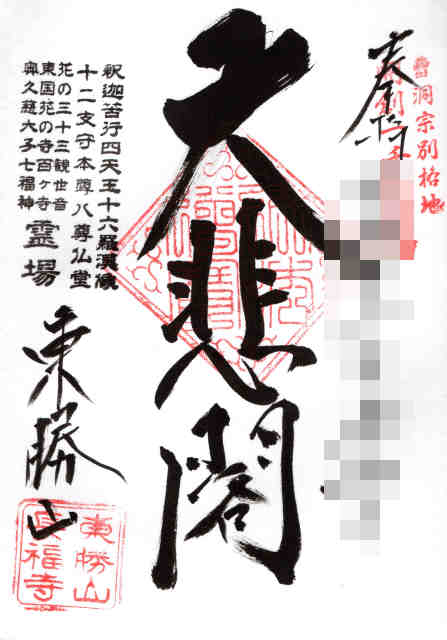 曹洞宗別格地
奉拝
大悲閣
釈迦苦行四天王十六羅漢儀
十二支守本尊八尊仏堂
花の三十三観世音
東国花の寺百ヶ寺
奥久慈大子七福神
霊場
東勝山
東勝山
真福寺